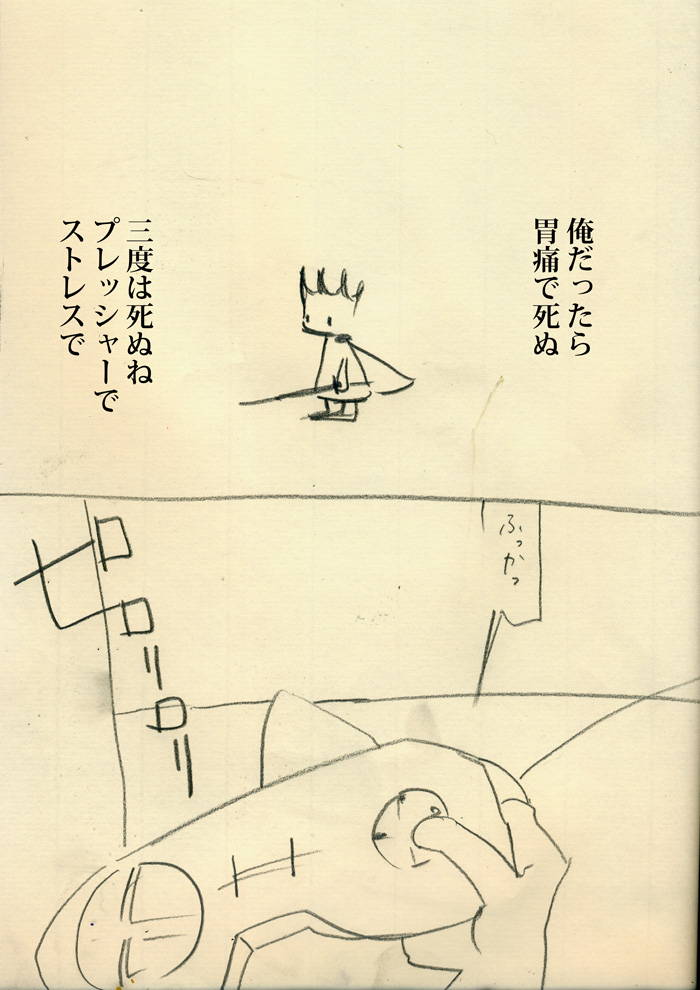 俺だったら
胃痛で死ぬ
三度は死ぬね
プレッシャーで
ストレスで
ふっかつ